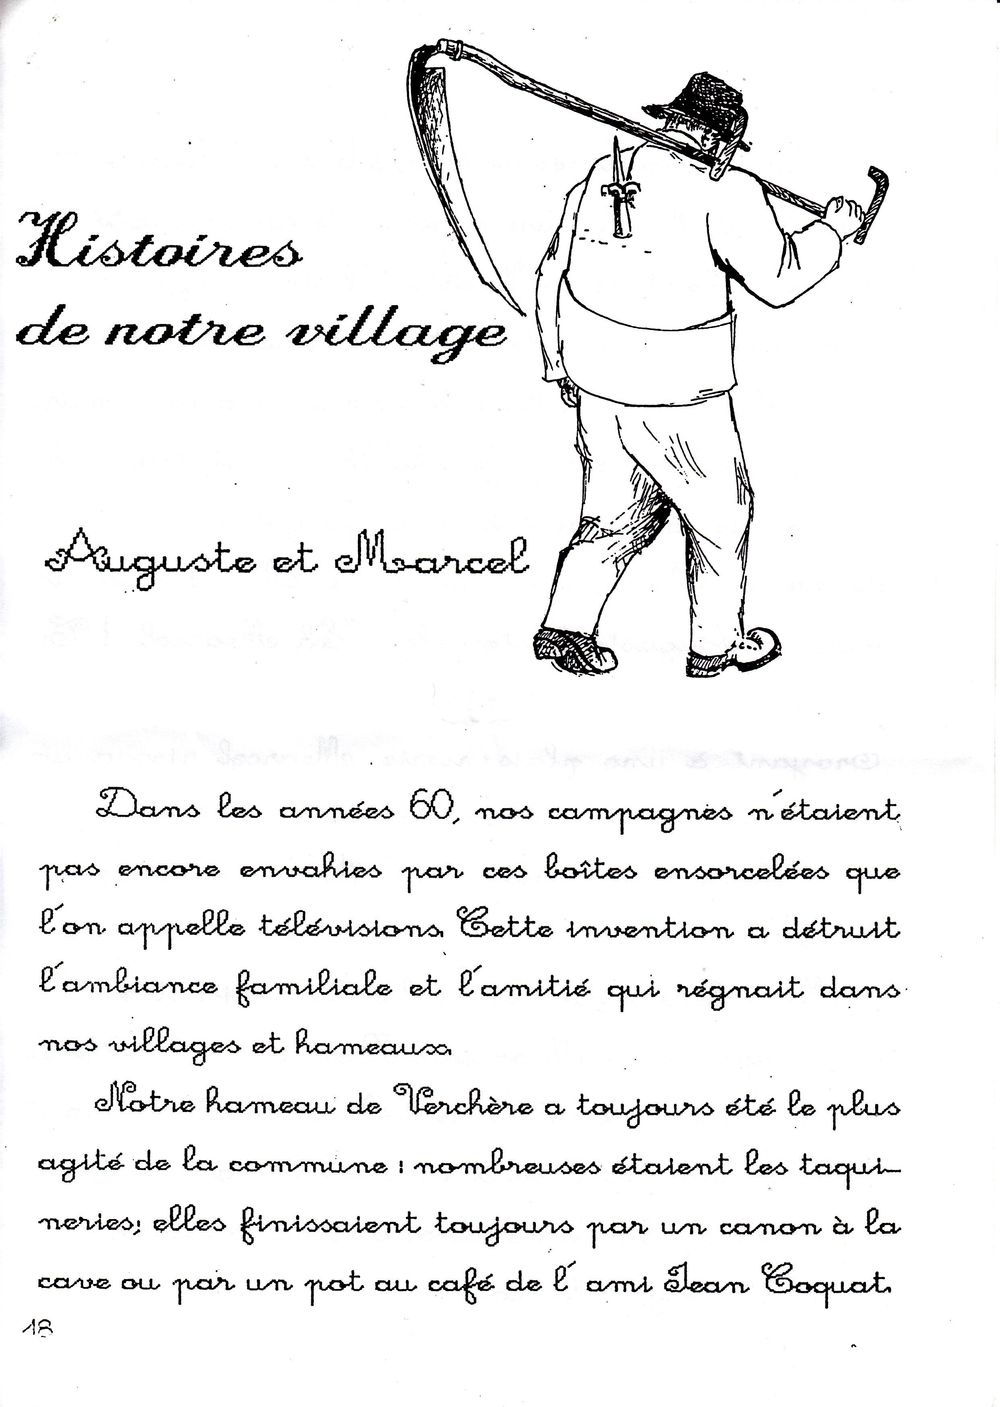 Histoires
de notre village
Auguste et Marcel
Dans les années 60, nos campagnes n'étaient
pas encore envahies par ces boîtes ensorcelées que
l'on appelle télévisions. Cette invention a détruit
l'ambiance familiale et l'amitié qui régnait dans
nos villages et hameaux.
Notre hameau de Verchère a toujours été le plus
agité de la commune : nombreuses étaient les taqui-
neries; elles finissaient toujours par un canon à la
cave ou par un pot au café de l' ami Jean Coquat.
18